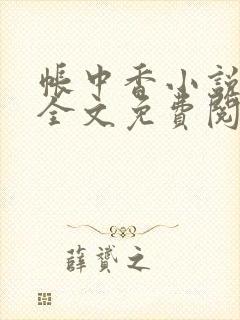 帐中香小说
全文免费阅
薛赟之